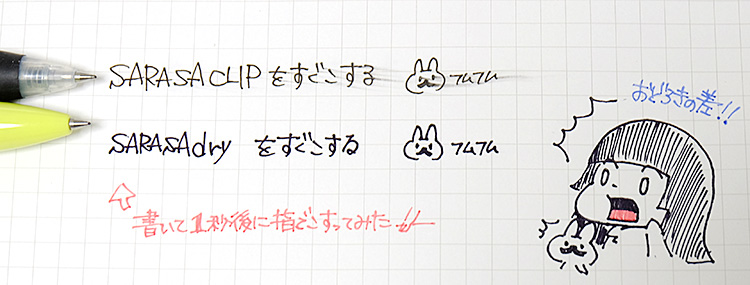 SARASA CLIP をすぐこする フムフム
おどろきの差!!
SARASA dry をすぐこする フムフム
書いて1秒後に指でこすってみた!!